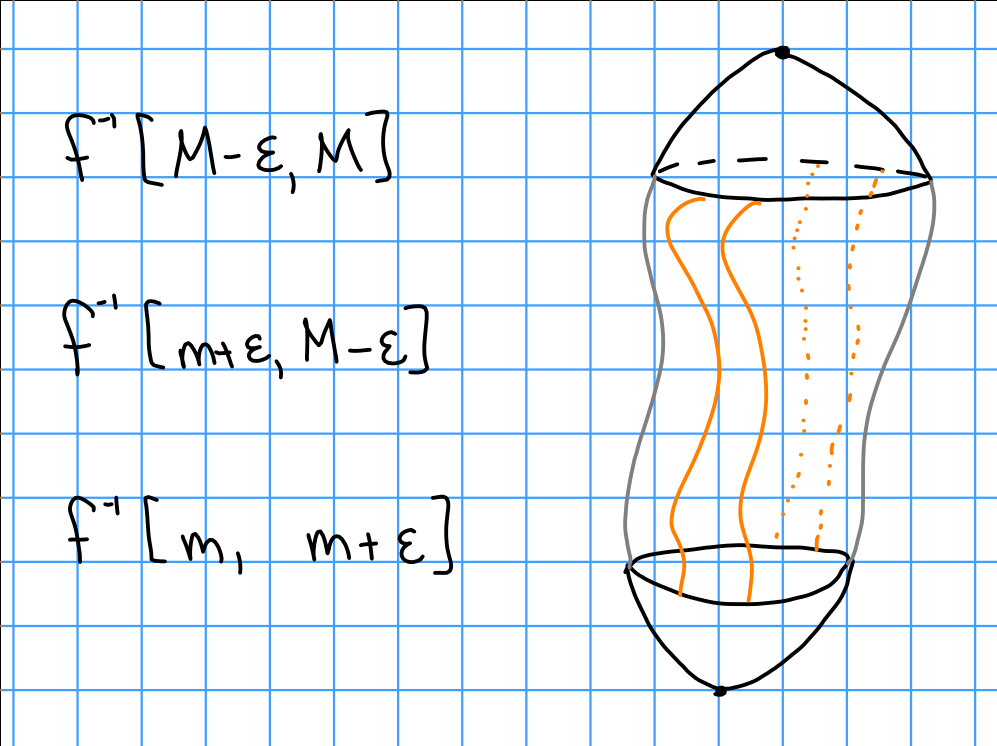 f⁻¹ [M-ε, M]
f⁻¹ [m+ε, M-ε]
f⁻¹ [m, m+ε]